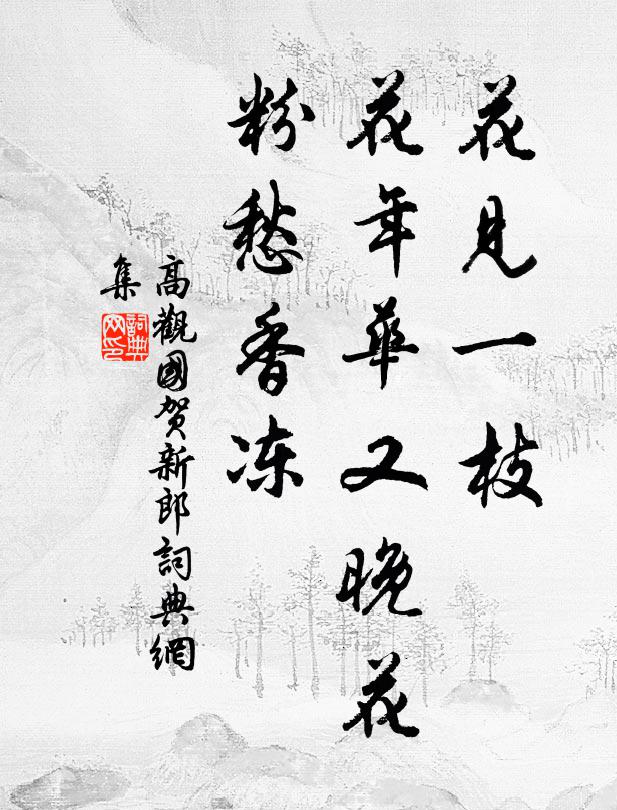 花見一枝
花年華又晚花
粉愁香冻
高觀國賀新郎詞典網
集
詞典
网印